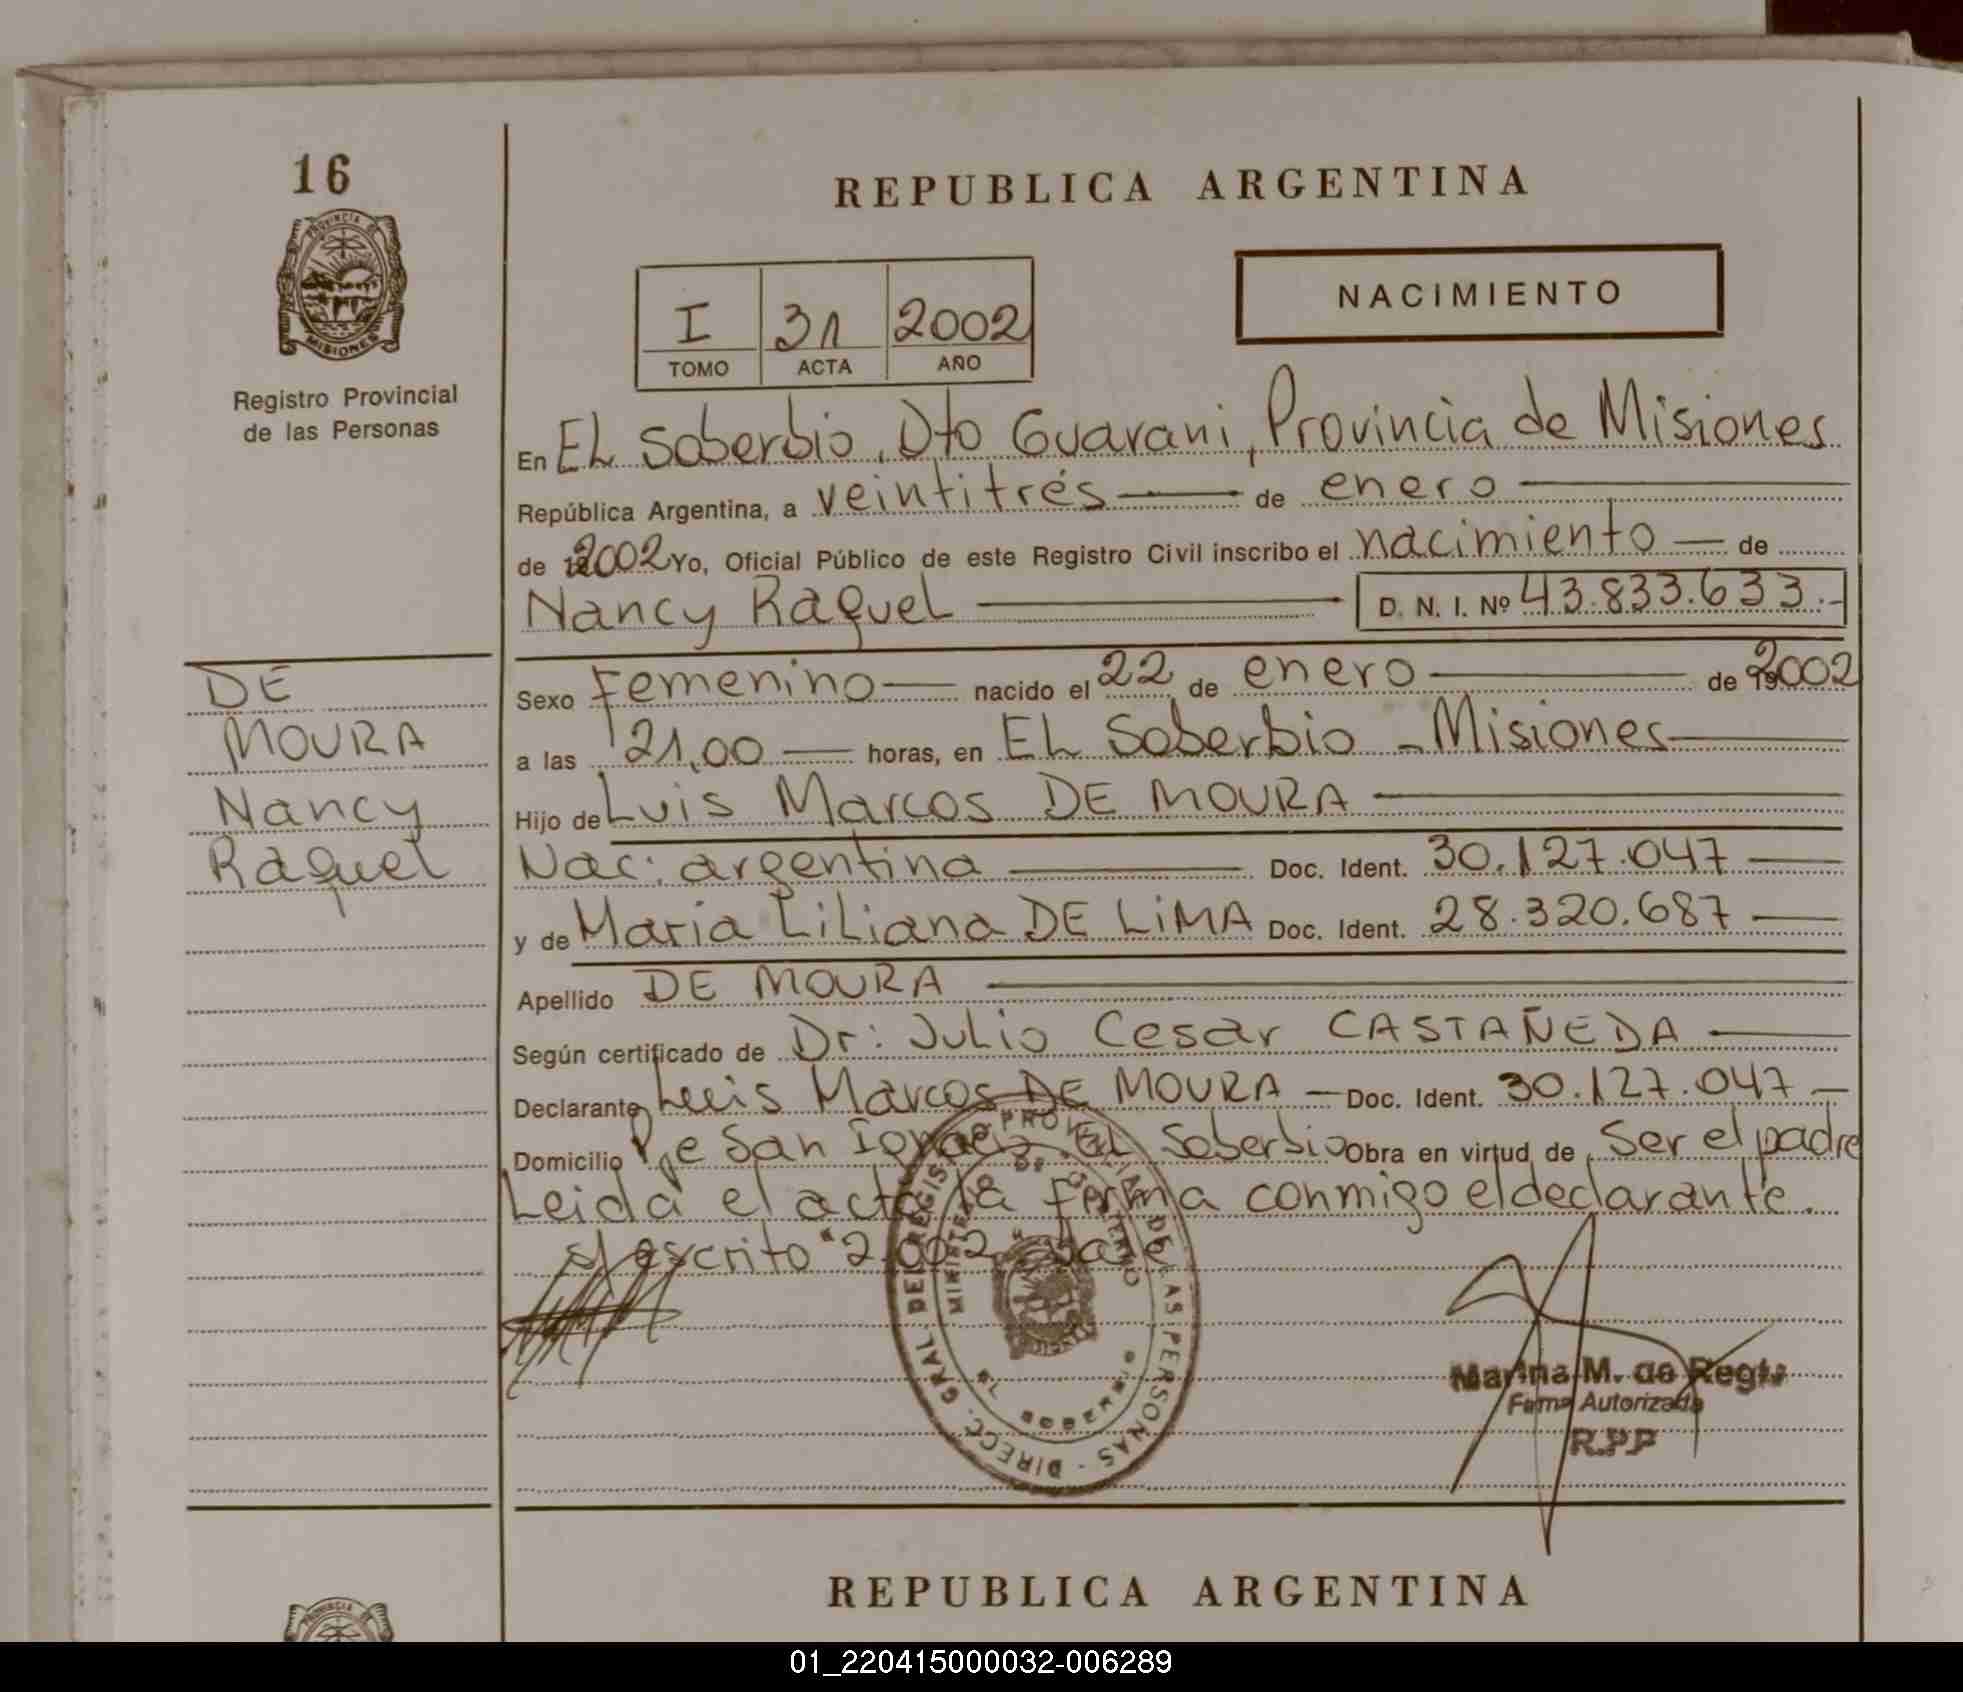 16
PROVINCIA DE
MISIONES
Registro Provincial
de las Personas
REPUBLICA ARGENTINA
NACIMIENTO
I 31 2002
TOMO ACTA AÑO
En EL Soberbio, Dto Guarani, Provincia de Misiones
República Argentina, a veintitrés de enero
de 2002 Yo, Oficial Público de este Registro Civil inscribo el nacimiento de
Nancy Raquel D. N. I. Nº 43.833.633.-
DE
MOURA
Nancy
Raquel
Sexo Femenino nacido el 22 de enero de 2002
a las 21,00 horas, en EL Soberbio - Misiones
Hijo de Luis Marcos DE MOURA
Nac: argentina Doc. Ident. 30.127.047
y de Maria Liliana DE LiMA Doc. Ident. 28.320.687
Apellido DE MOURA
Según certificado de Dr: Julio Cesar CASTAÑEDA
Declarante Luis Marcos DE MOURA - Doc. Ident. 30.127.047 -
Domicilio San Ignacio EL Soberbio Obra en virtud de Ser el padre
Leida el acta la firma conmigo el declarante.
s/ escrito "2.002" Vale
DIRECC. GRAL. DEL REGISTRO PROVINCIAL DE LAS PERSONAS
MINISTERIO DE GOBIERNO
EL SOBERBIO
Marina M. de
Firma Autorizada
R.P.P
REPUBLICA ARGENTINA
PROVINCIA DE
01_220415000032-006289